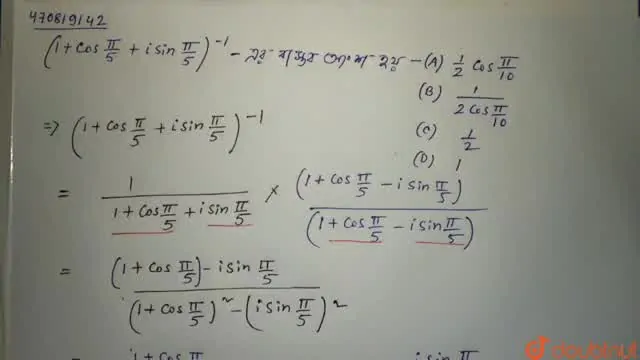 470819142
(1 + cos π/5 + i sin π/5)^-1 - এর বাস্তব অংশ হয় - (A) 1/2 cos π/10
(B) 1/(2 cos π/10)
(C) 1/2
(D) 1
⇒ (1 + cos π/5 + i sin π/5)^-1
= 1/(1 + cos π/5 + i sin π/5) × (1 + cos π/5 - i sin π/5)/(1 + cos π/5 - i sin π/5)
= ((1 + cos π/5) - i sin π/5)/((1 + cos π/5)^2 - (i sin π/5)^2)